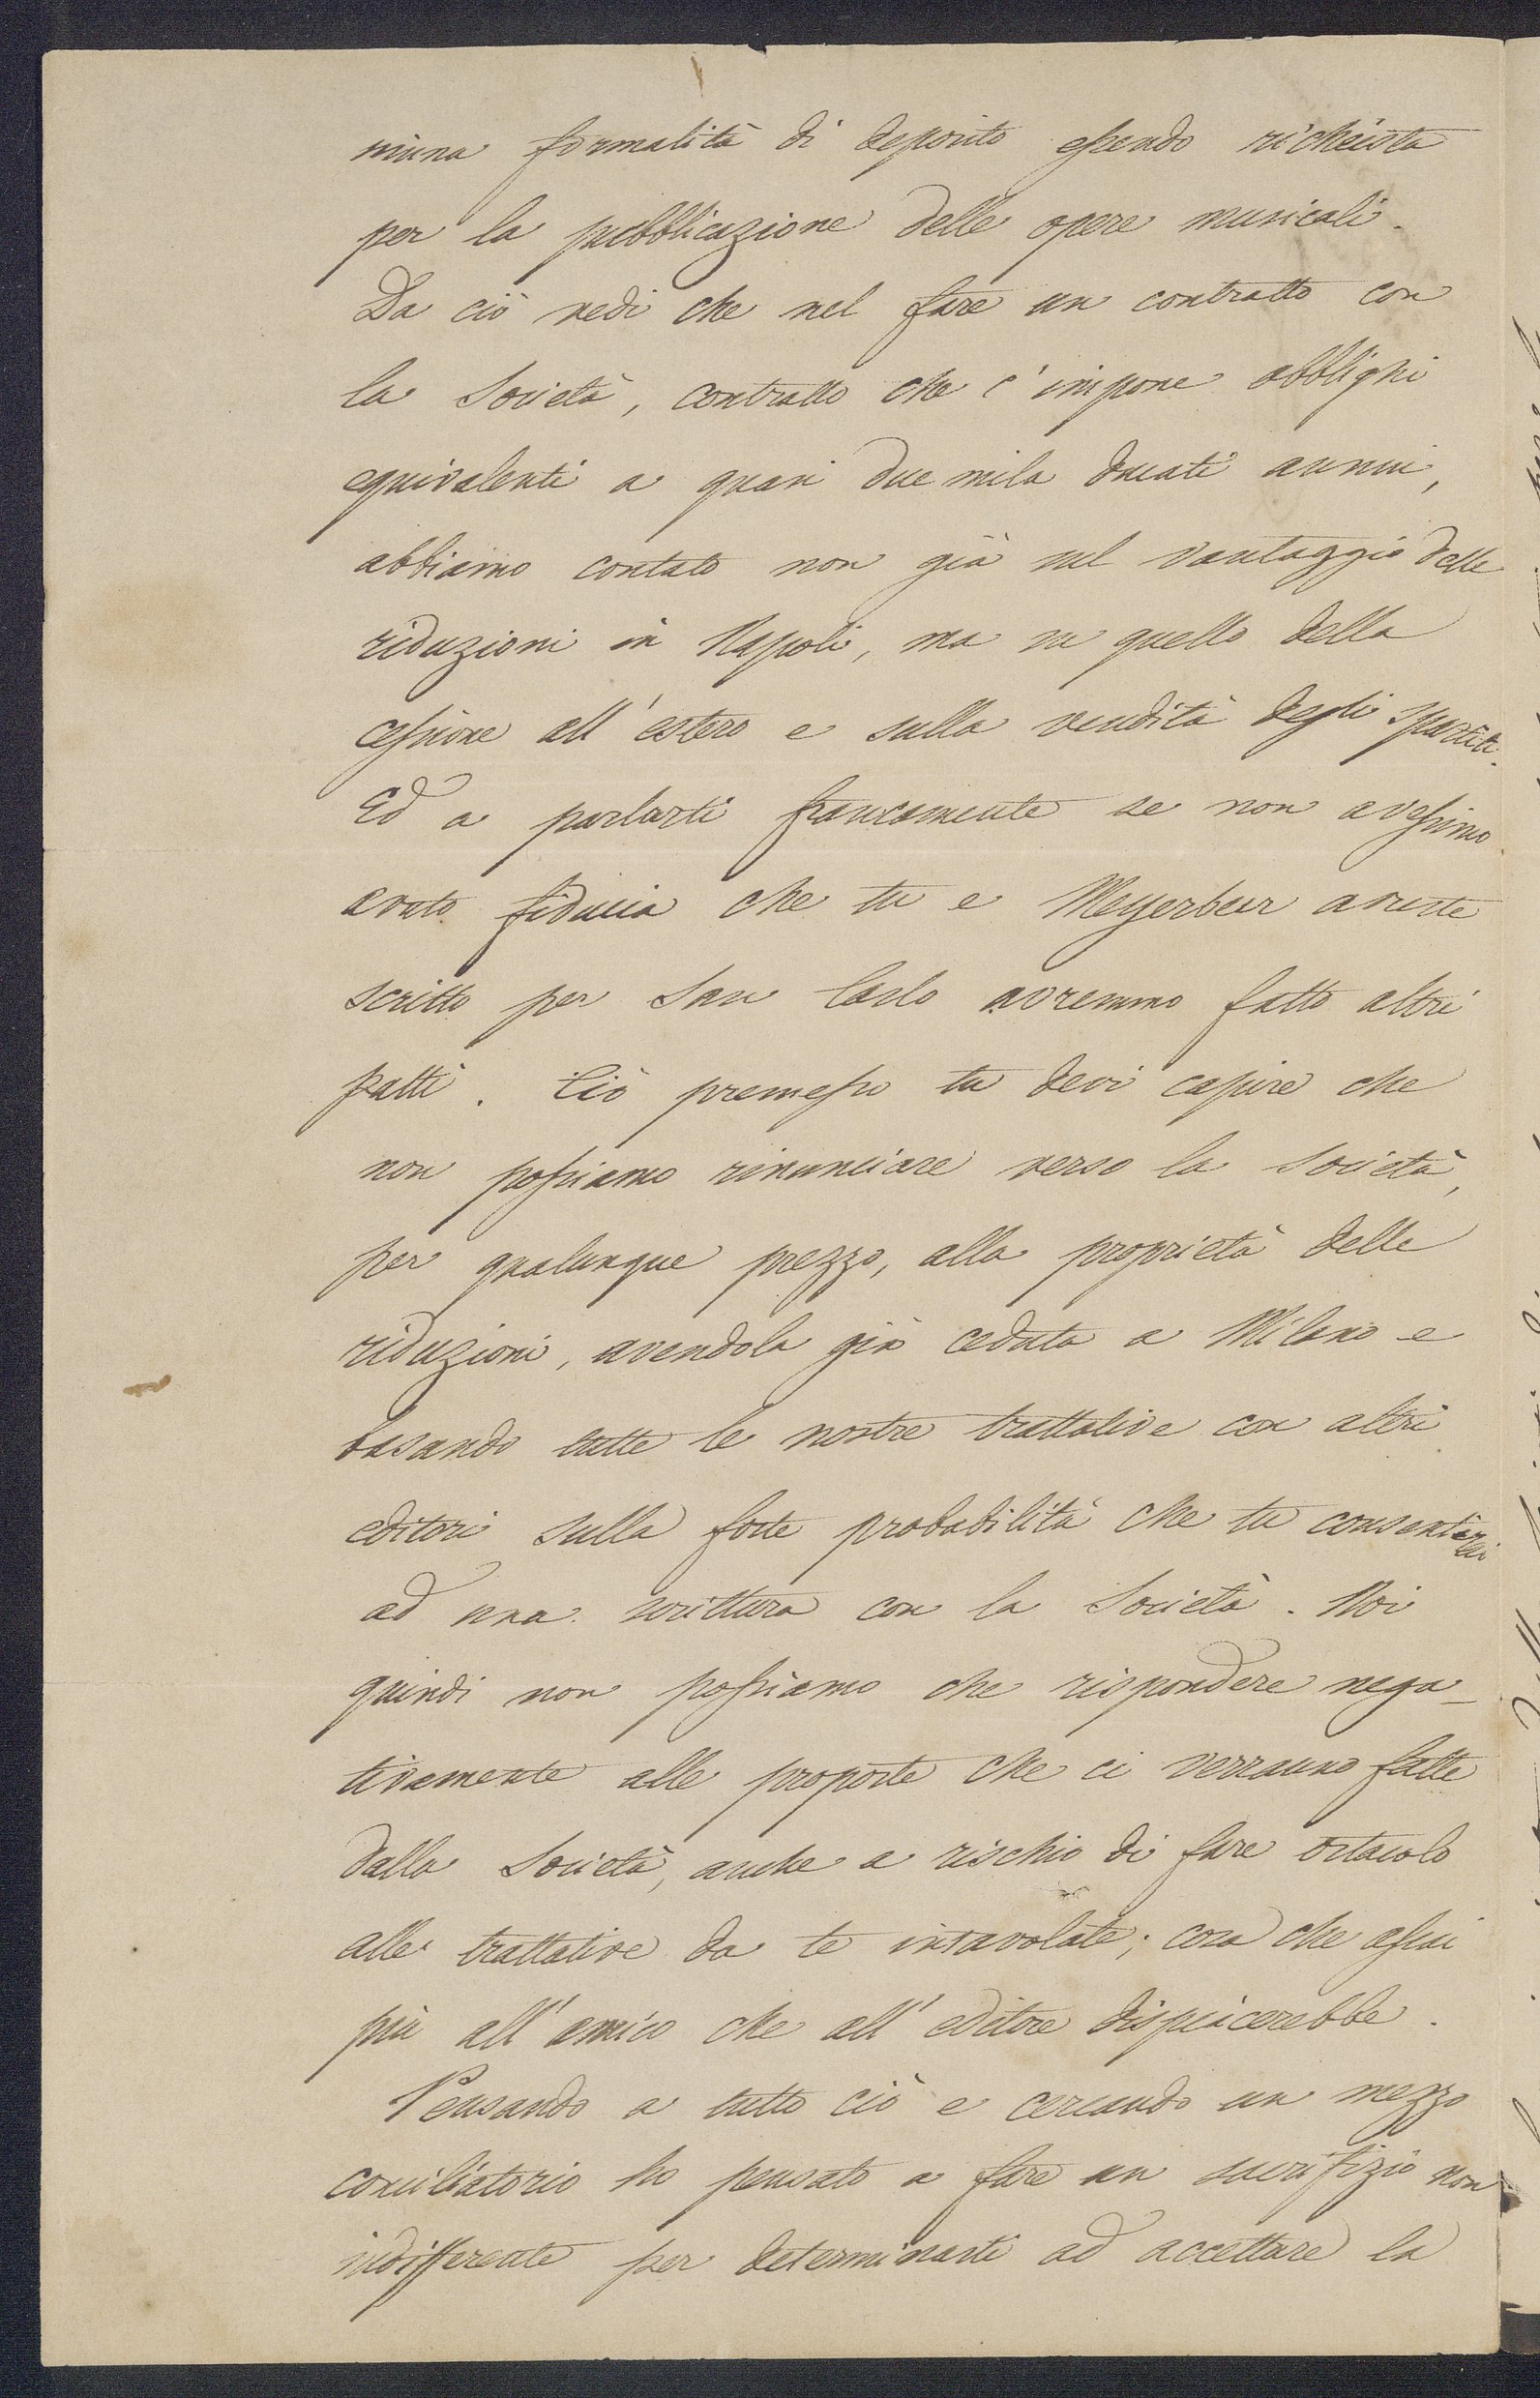 niuna formalità di deposito essendo richiesta
per la pubblicazione delle opere musicali.
Da ciò vedi che nel fare un contratto con
la Società, contratto che c'impone obblighi
equivalenti a quasi due mila ducati annui,
abbiamo contato non già sul vantaggio delle
riduzioni in Napoli, ma su quello della
cessione all'estero e sulla vendita degli spartiti.
Ed a parlarti francamente se non avessimo
avuto fiducia che tu e Meyerbeer avreste
scritto per San Carlo avremmo fatto altri
patti. Ciò premesso tu devi capire che
non possiamo rinunciare verso la Società,
per qualunque prezzo, alla proprietà delle
riduzioni, avendola già ceduta a Milano e
basando tutte le nostre trattative con altri
editori sulla forte probabilità che tu consentirai
ad una scrittura con la Società. Noi
quindi non possiamo che rispondere nega-
tivamente alle proposte che ci verranno fatte
dalla Società, anche a rischio di fare ostacolo
alle trattative da te intavolate; cosa che assai
più all'amico che all'editore dispiacerebbe.
Pensando a tutto ciò e cercando un mezzo
conciliatorio ho pensato a fare un sacrifizio non
indifferente per determinarti ad accettare la